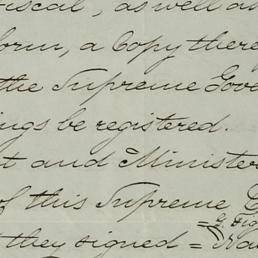 iscal, as well as
form, a Copy there
the Supreme Gove
ings be registered.
t and Minister
of this Supreme
= G. Fig
t they signed = Na